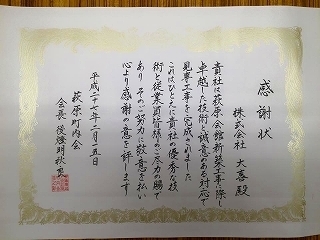 感謝状
株式会社 大喜殿
貴社は萩原公館新築工事に際し
卓越した技術と誠意のある対応で
見事工事を完成されました
これはひとえに貴社の優秀な技
術と従業員皆様のご尽力の賜で
あり そのご努力に敬意を払い
心より感謝の意を評します
平成二十七年二月一五日
萩原町内会
会長 後燈明秋良